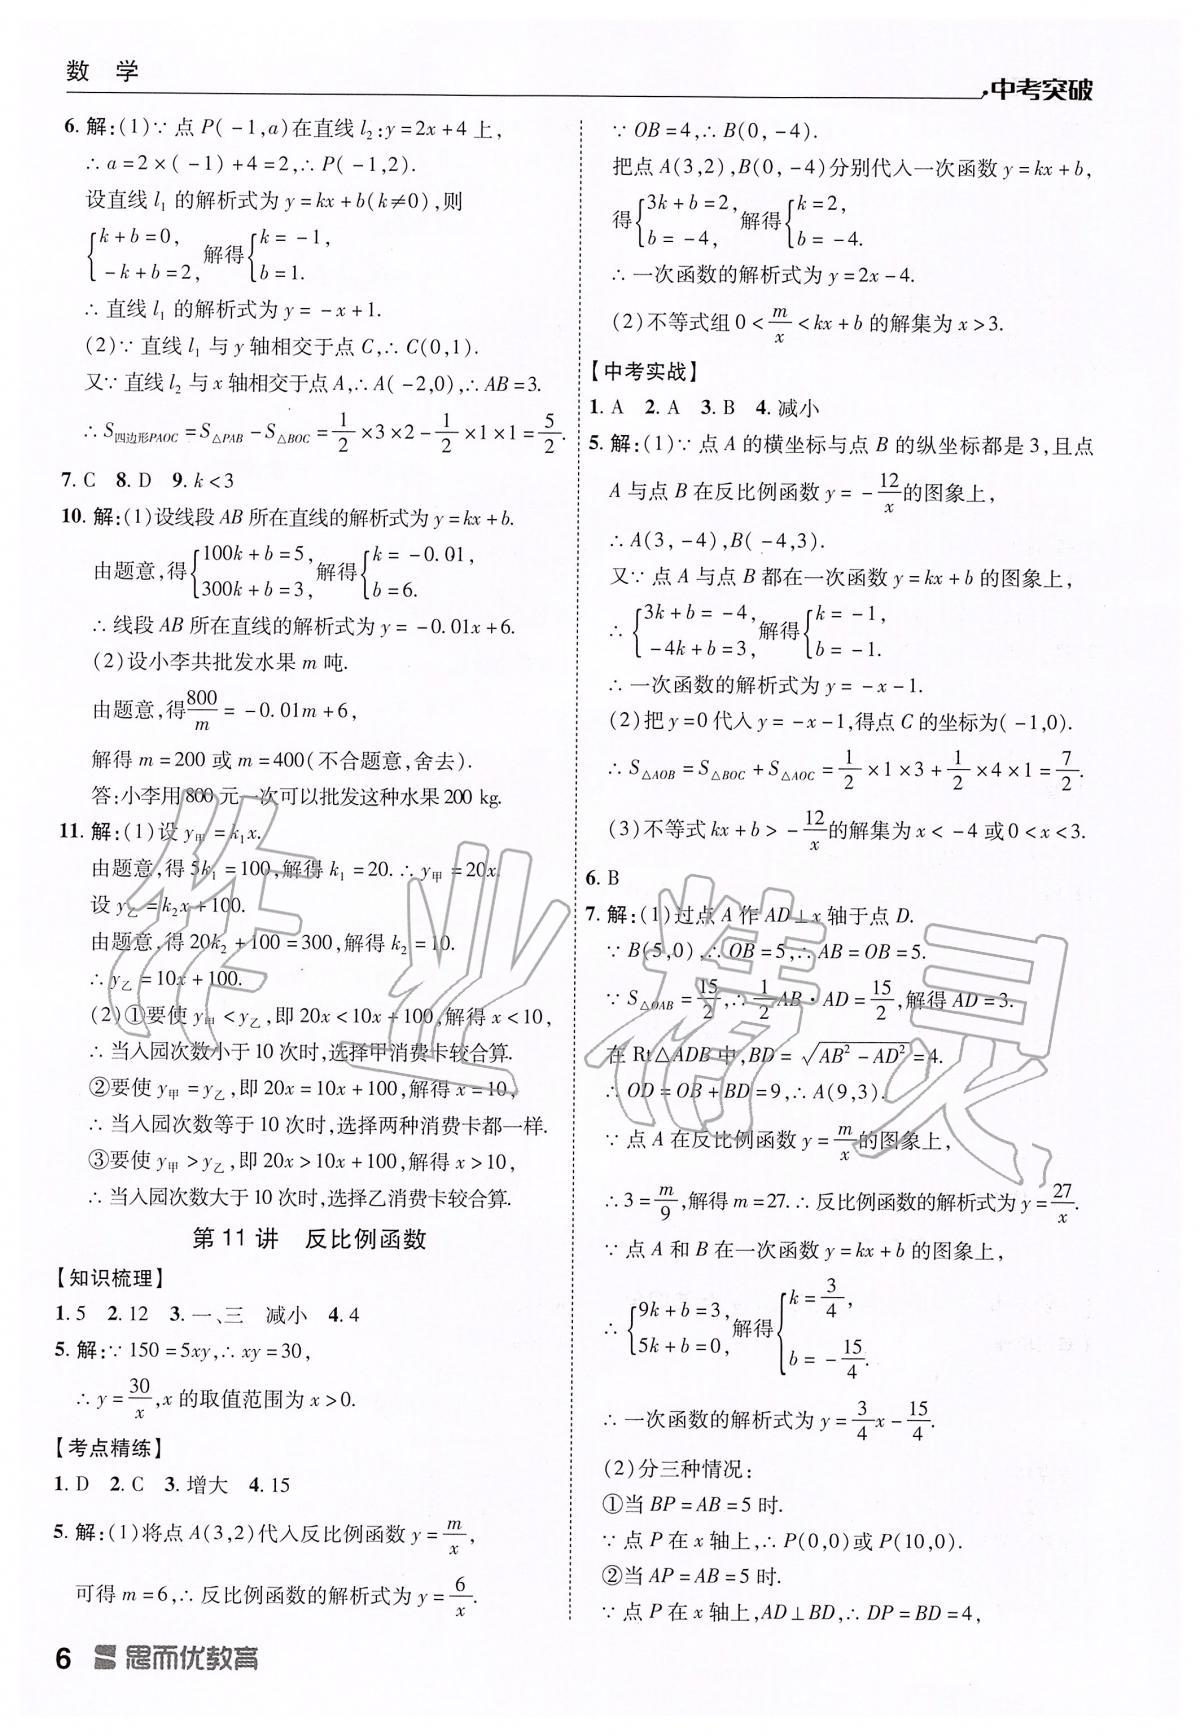 数 学
中考突破
6. 解:(1)∵ 点 P( -1,a)在直线 l₂:y=2x+4 上,
∴ a=2×( -1) +4=2,∴ P( -1,2).
设直线 l₁ 的解析式为 y=kx+b(k≠0),则
{k+b=0, -k+b=2, 解得{k= -1, b=1.
∴ 直线 l₁ 的解析式为 y= -x+1.
(2)∵ 直线 l₁ 与 y 轴相交于点 C,∴ C(0,1).
又∵ 直线 l₂ 与 x 轴相交于点 A,∴ A( -2,0),∴ AB=3.
∴ S四边形PAOC =S△PAB -S△BOC = 1/2 ×3×2- 1/2 ×1×1= 5/2.
7. C 8. D 9. k<3
10. 解:(1)设线段 AB 所在直线的解析式为 y=kx+b.
由题意,得{100k+b=5, 300k+b=3, 解得{k= -0.01, b=6.
∴ 线段 AB 所在直线的解析式为 y= -0.01x+6.
(2)设小李共批发水果 m 吨.
由题意,得 800/m = -0.01m+6,
解得 m=200 或 m=400(不合题意,舍去).
答:小李用 800 元一次可以批发这种水果 200 kg.
11. 解:(1)设 y甲 =k₁x.
由题意,得 5k₁ =100,解得 k₁ =20. ∴ y甲 =20x.
设 y乙 =k₂x+100.
由题意,得 20k₂ +100=300,解得 k₂ =10.
∴ y乙 =10x+100.
(2)①要使 y甲 <y乙,即 20x<10x+100,解得 x<10,
∴ 当入园次数小于 10 次时,选择甲消费卡较合算.
②要使 y甲 =y乙,即 20x=10x+100,解得 x=10,
∴ 当入园次数等于 10 次时,选择两种消费卡都一样.
③要使 y甲 >y乙,即 20x>10x+100,解得 x>10,
∴ 当入园次数大于 10 次时,选择乙消费卡较合算.
第 11 讲 反比例函数
【知识梳理】
1. 5 2. 12 3. 一、三 减小 4. 4
5. 解:∵ 150=5xy,∴ xy=30,
∴ y= 30/x,x 的取值范围为 x>0.
【考点精练】
1. D 2. C 3. 增大 4. 15
5. 解:(1)将点 A(3,2)代入反比例函数 y= m/x,
可得 m=6,∴ 反比例函数的解析式为 y= 6/x.
6 思而优教育
∵ OB=4,∴ B(0, -4).
把点 A(3,2),B(0, -4)分别代入一次函数 y=kx+b,
得{3k+b=2, b= -4, 解得{k=2, b= -4.
∴ 一次函数的解析式为 y=2x-4.
(2)不等式组 0< m/x <kx+b 的解集为 x>3.
【中考实战】
1. A 2. A 3. B 4. 减小
5. 解:(1)∵ 点 A 的横坐标与点 B 的纵坐标都是 3,且点
A 与点 B 在反比例函数 y= - 12/x 的图象上,
∴ A(3, -4),B( -4,3).
又∵ 点 A 与点 B 都在一次函数 y=kx+b 的图象上,
∴ {3k+b= -4, -4k+b=3, 解得{k= -1, b= -1.
∴ 一次函数的解析式为 y= -x-1.
(2)把 y=0 代入 y= -x-1,得点 C 的坐标为( -1,0).
∴ S△AOB =S△BOC +S△AOC = 1/2 ×1×3+ 1/2 ×4×1= 7/2.
(3)不等式 kx+b> - 12/x 的解集为 x< -4 或 0<x<3.
6. B
7. 解:(1)过点 A 作 AD⊥x 轴于点 D.
∵ B(5,0),∴ OB=5,∴ AB=OB=5.
∵ S△OAB = 15/2,∴ 1/2 AB·AD= 15/2,解得 AD=3.
在 Rt△ADB 中,BD= √(AB²-AD²) =4.
∴ OD=OB+BD=9,∴ A(9,3).
∵ 点 A 在反比例函数 y= m/x 的图象上,
∴ 3= m/9,解得 m=27. ∴ 反比例函数的解析式为 y= 27/x.
∵ 点 A 和 B 在一次函数 y=kx+b 的图象上,
∴ {9k+b=3, 5k+b=0, 解得{k= 3/4, b= - 15/4.
∴ 一次函数的解析式为 y= 3/4 x- 15/4.
(2)分三种情况:
①当 BP=AB=5 时.
∵ 点 P 在 x 轴上,∴ P(0,0)或 P(10,0).
②当 AP=AB=5 时.
∵ 点 P 在 x 轴上,AD⊥BD,∴ DP=BD=4,
作业精灵